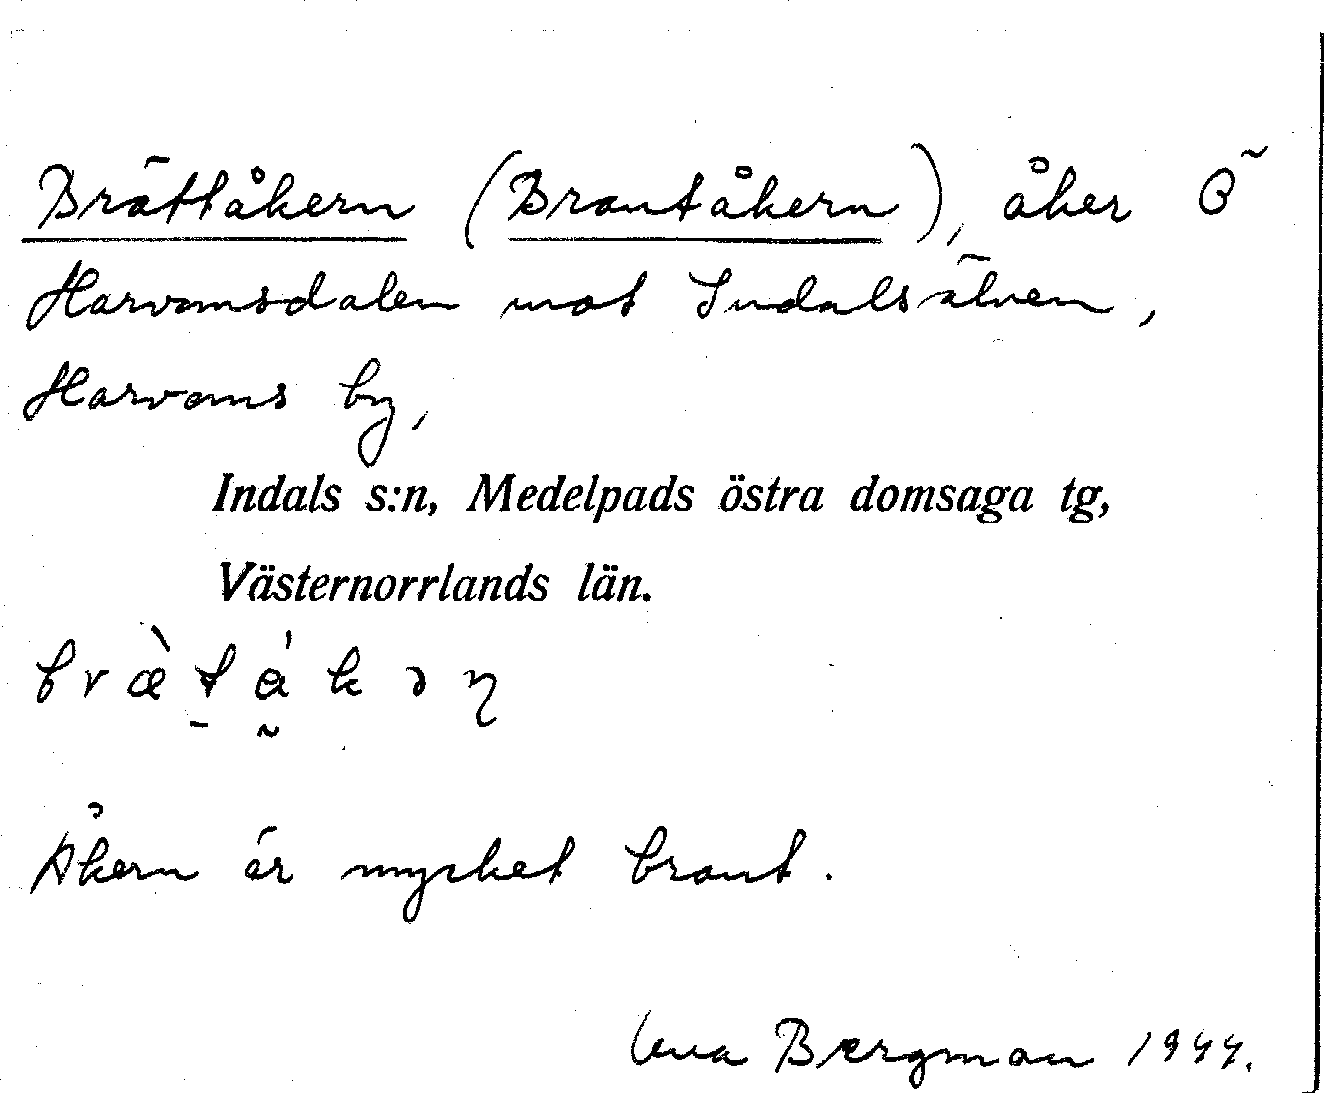 Brättåkern (Brantåkern), åker Ö
Harvomsdalen mot Indalsälven,
Harvoms by,
Indals s:n, Medelpads östra domsaga tg,
Västernorrlands län.
Åkern är mycket brant.
Bergman 1944.